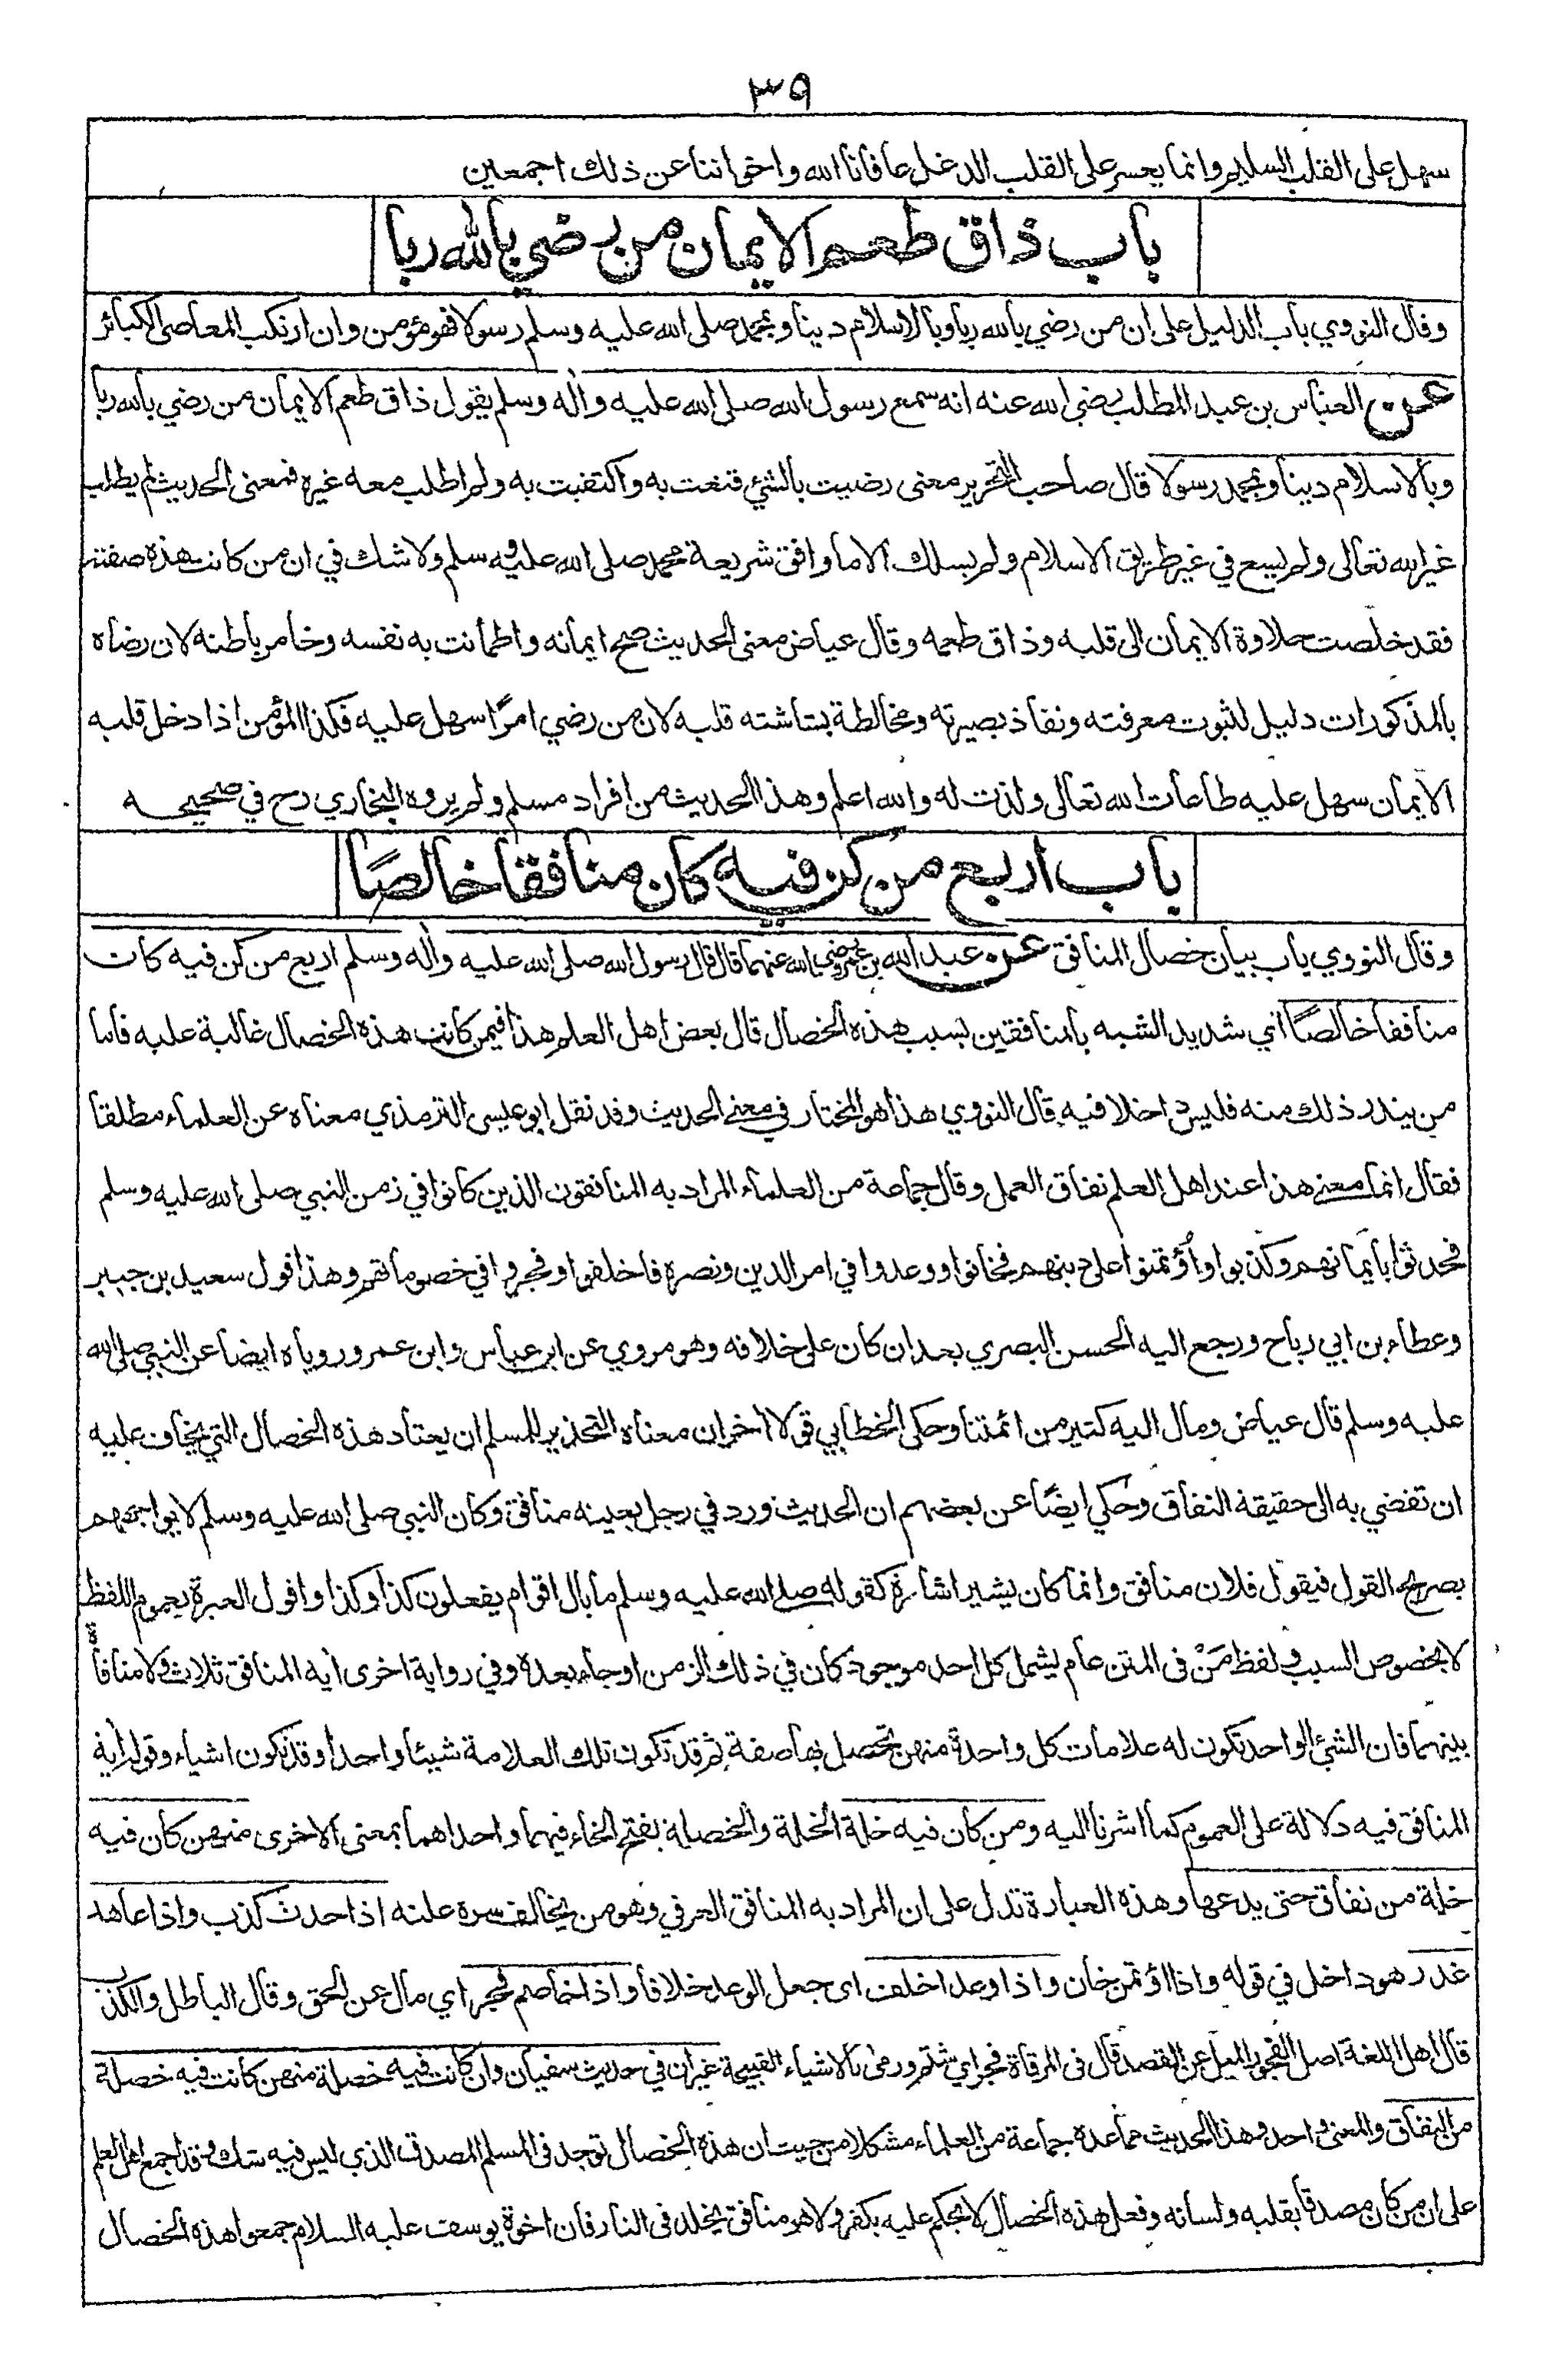 ٣٩
سهل على القلب السليم وانما يعسر على القلب الدغل عافانا الله واخواننا عن ذلك اجمعين
باب ذاق طعم الايمان من رضي بالله ربا
وقال النووي باب الدليل على ان من رضي بالله ربا وبالاسلام دينا وبمحمد صلى الله عليه وسلم رسولا فهو مؤمن وان ارتكب المعاصى الكبائر
عن العباس بن عبد المطلب رضي الله عنه انه سمع رسول الله صلى الله عليه واٰله وسلم يقول ذاق طعم الايمان من رضي بالله ربا
وبالاسلام دينا وبمحمد رسولا قال صاحب التحرير معنى رضيت بالشئ قنعت به واكتفيت به ولم اطلب معه غيره فمعنى الحديث لم يطلب
غير الله تعالى ولم يسع في غير طريق الاسلام ولم يسلك الا ما وافق شريعة محمد صلى الله عليه وسلم ولا شك في ان من كانت هذه صفته
فقد خلصت حلاوة الايمان الى قلبه وذاق طعمه وقال عياض معنى الحديث صح ايمانه واطمأنت به نفسه وخامر باطنه لان رضاه
بالمذكورات دليل لثبوت معرفته ونفاذ بصيرته ومخالطة بشاشته قلبه لان من رضي امرًا سهل عليه فكذا المؤمن اذا دخل قلبه
الايمان سهل عليه طاعات الله تعالى ولذت له والله اعلم وهذا الحديث من افراد مسلم ولم يروه البخاري رح في صحيحه
باب اربع من كن فيه كان منافقا خالصًا
وقال النووي باب بيان خصال المنافق عن عبد الله بن عمرو رضي الله عنهما قال قال رسول الله صلى الله عليه واٰله وسلم اربع من كن فيه كان
منافقا خالصًا اي شديد الشبه بالمنافقين بسبب هذه الخصال قال بعض اهل العلم هذا فيمن كانت هذه الخصال غالبة عليه فاما
من يندر ذلك منه فليس داخلا فيه قال النووي هذا هو المختار في معنى الحديث وقد نقل ابو عيسى الترمذي معناه عن العلماء مطلقا
فقال انما معنى هذا عند اهل العلم نفاق العمل وقال جماعة من العلماء المراد به المنافقون الذين كانوا في زمن النبي صلى الله عليه وسلم
فحدثوا بايمانهم وكذبوا واؤتمنوا على دينهم فخانوا ووعدوا في امر الدين ونصره فاخلفوا وفجروا في خصوماتهم وهذا قول سعيد بن جبير
وعطاء بن ابي رباح ورجع اليه الحسن البصري بعد ان كان على خلافه وهو مروي عن ابن عباس وابن عمر وروياه ايضا عن النبي صلى الله
عليه وسلم قال عياض ومال اليه كثير من ائمتنا وحكى الخطابي قولا اٰخر ان معناه التحذير للمسلم ان يعتاد هذه الخصال التي يخاف عليه
ان تفضي به الى حقيقة النفاق وحكي ايضًا عن بعضهم ان الحديث ورد في رجل بعينه منافق وكان النبي صلى الله عليه وسلم لا يواجههم
بصريح القول فيقول فلان منافق وانما كان يشير اشارة كقوله صلى الله عليه وسلم ما بال اقوام يفعلون كذا وكذا واقول العبرة بعموم اللفظ
لا بخصوص السبب ولفظ مَنْ فى المتن عام يشمل كل احد موجود كان في ذلك الزمن او جاء بعده وفي رواية اخرى اٰية المنافق ثلاث ولا منافاة
بينهما فان الشئ الواحد تكون له علامات كل واحدة منهن تحصل بها صفة ثم قد تكون تلك العلامة شيئا واحدا وقد تكون اشياء وقوله اٰية
المنافق فيه دلالة على العموم كما اشرنا اليه ومن كان فيه خلة الخلة والخصلة بفتح الخاء فيهما واحداهما بمعنى الاخرى منهن كان فيه
خلة من نفاق حتى يدعها وهذه العبارة تدل على ان المراد به المنافق العرفي وهو من يخالف سره علنه اذا حدث كذب واذا عاهد
غدر هو داخل في قوله واذا اؤتمن خان واذا وعد اخلف اى جعل الوعد خلافا واذا خاصم فجر اي مال عن الحق وقال الباطل والكذب
قال اهل اللغة اصل الفجور الميل عن القصد قال فى المرقاة فجر اي شتم ورمى بالاشياء القبيحة غير ان في حديث سفيان وان كانت فيه خصلة منهن كانت فيه خصلة
من النفاق والمعنى واحد وهذا الحديث مما عده جماعة من العلماء مشكلا من حيث ان هذه الخصال توجد فى المسلم المصدق الذي ليس فيه شك وقد اجمع اهل العلم
على ان من كان مصدقا بقلبه ولسانه وفعل هذه الخصال لا يحكم عليه بكفر ولا هو منافق يخلد فى النار فان اخوة يوسف عليه السلام جمعوا هذه الخصال